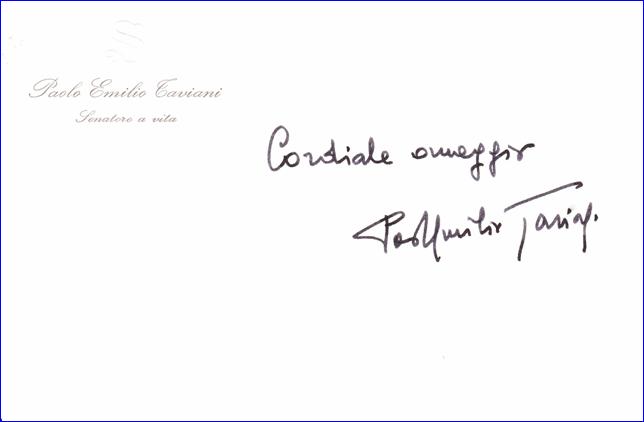 Paolo Emilio Taviani
Senatore a vita
Cordiale omaggio
Paolo Emilio Taviani